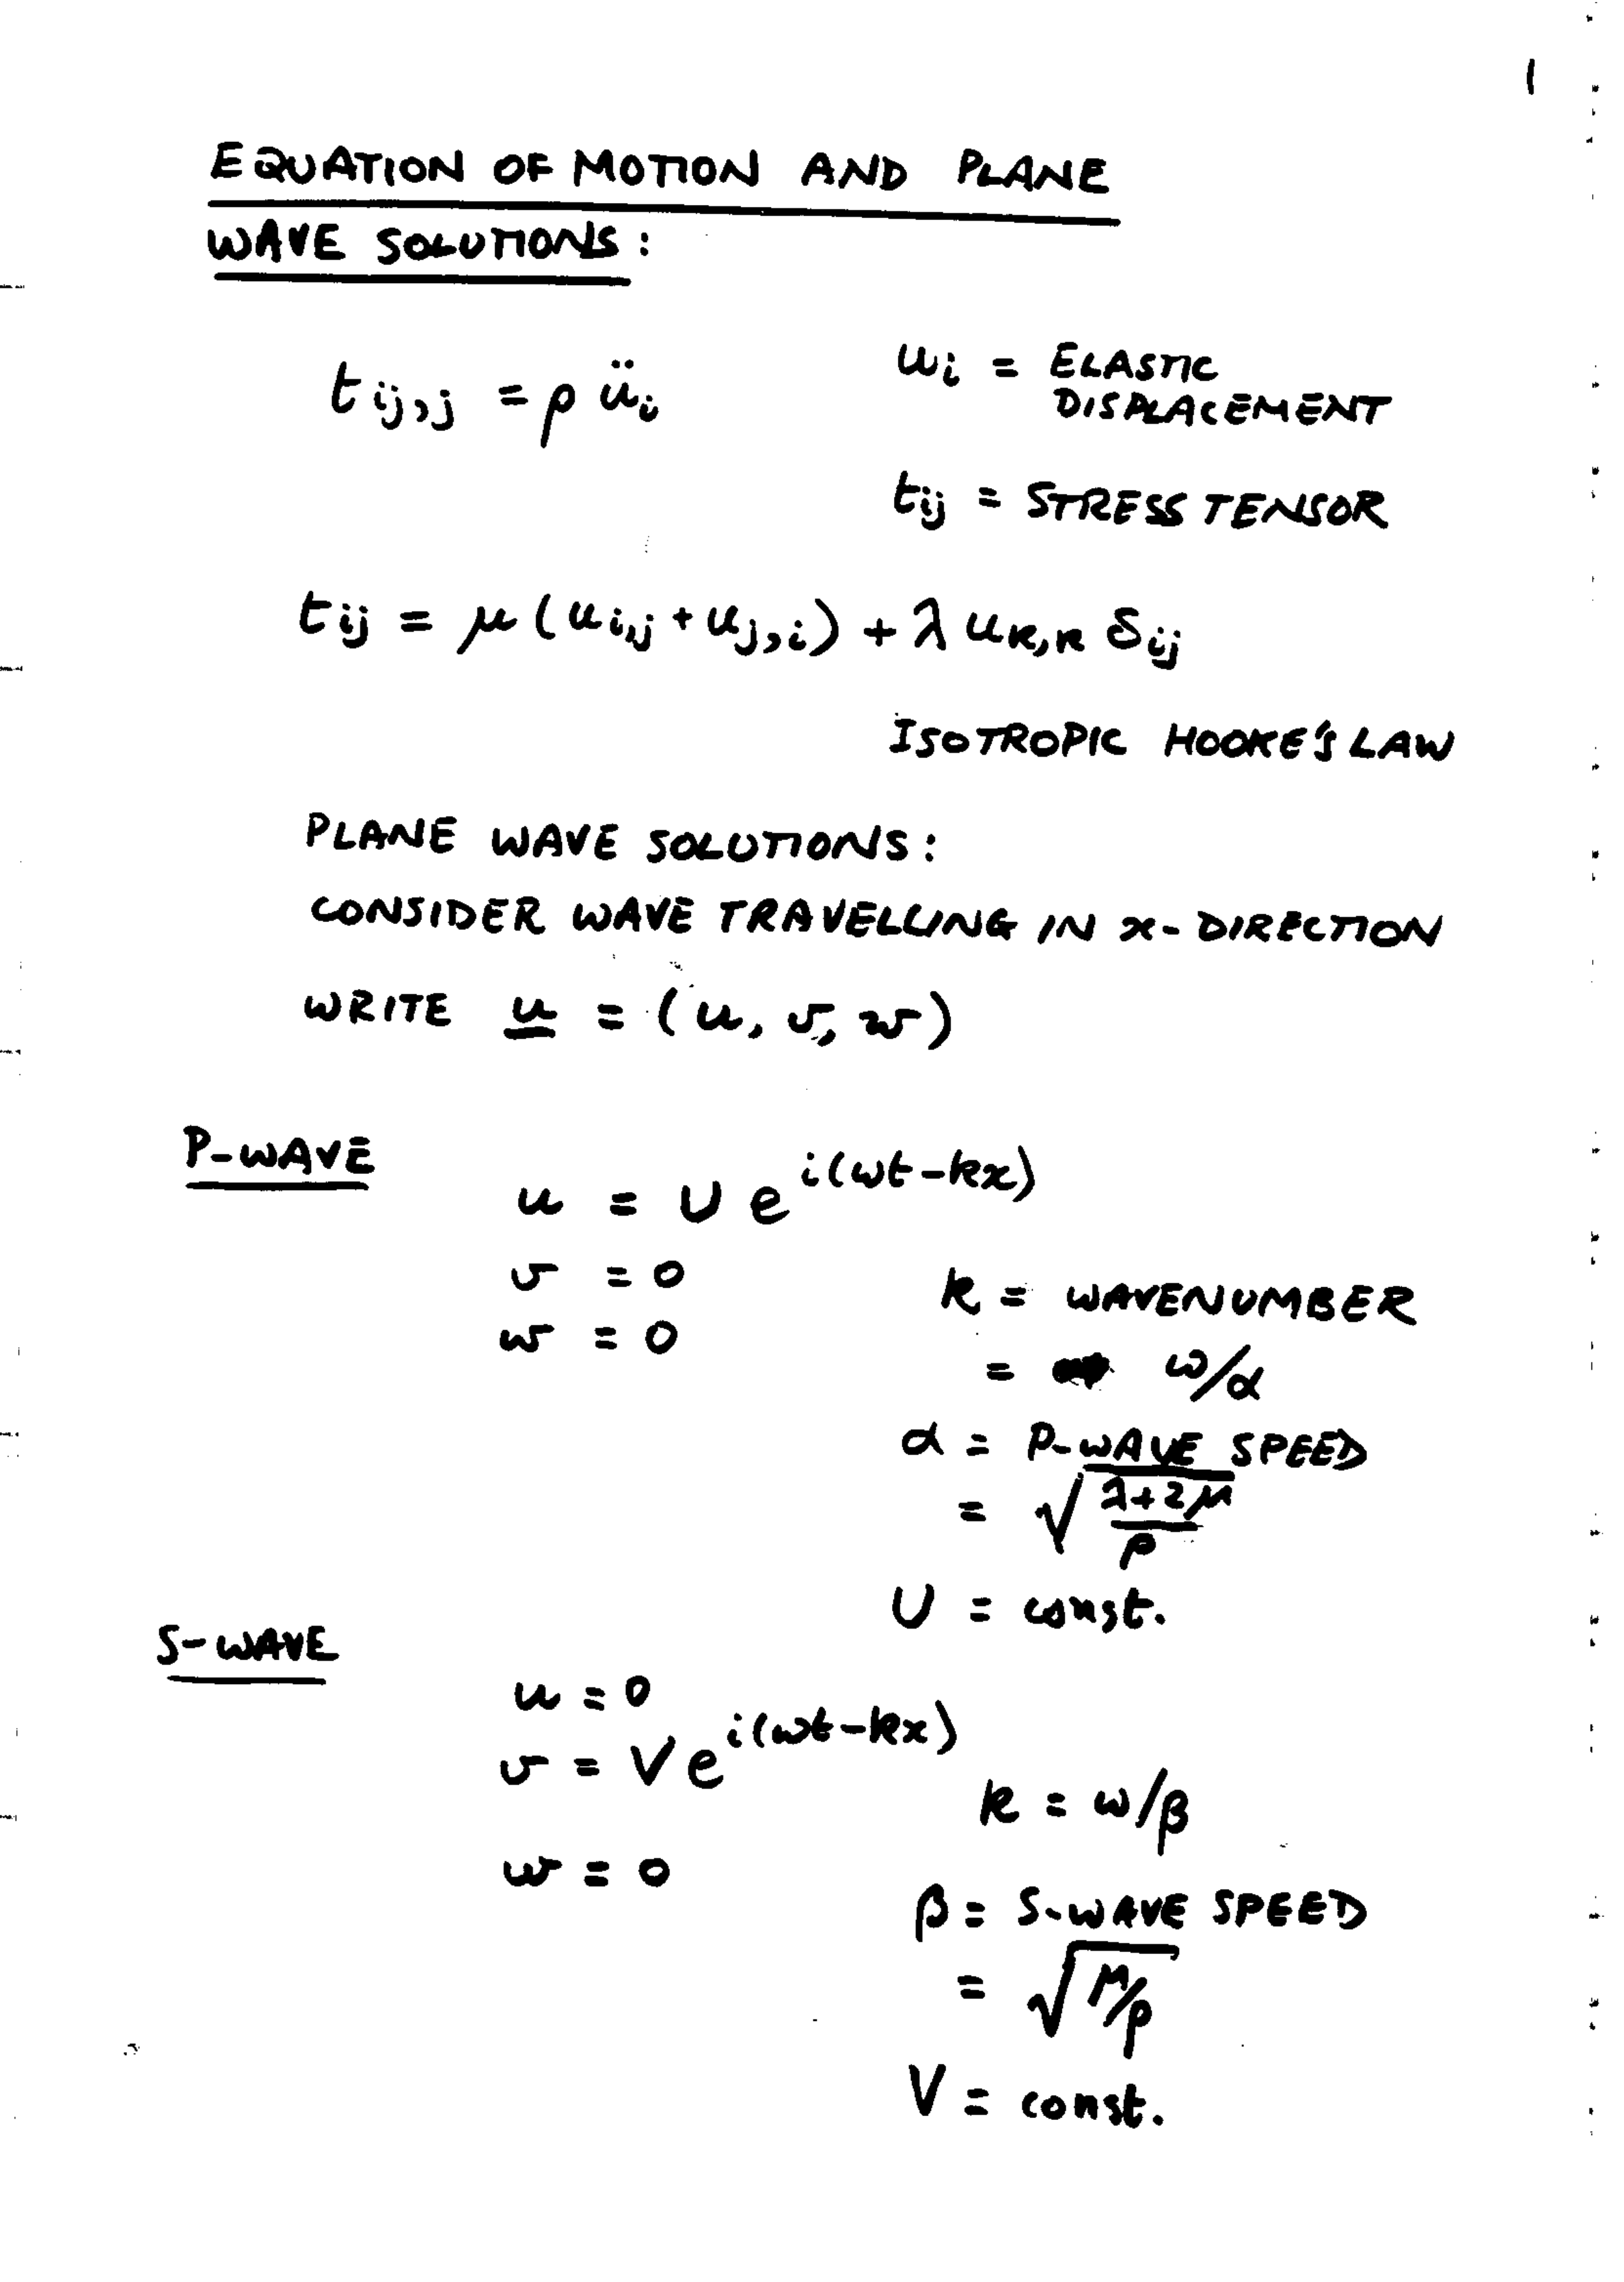 1
EQUATION OF MOTION AND PLANE
WAVE SOLUTIONS:
t_{ij,j} = ρ ü_i
u_i = ELASTIC
DISPLACEMENT
t_{ij} = STRESS TENSOR
t_{ij} = μ(u_{i,j} + u_{j,i}) + λ u_{k,k} δ_{ij}
ISOTROPIC HOOKE'S LAW
PLANE WAVE SOLUTIONS:
CONSIDER WAVE TRAVELLING IN x-DIRECTION
WRITE u = (u, v, w)
P-WAVE
u = U e^{i(ωt-kx)}
v = 0
w = 0
k = WAVENUMBER
= ω/α
α = P-WAVE SPEED
= √((λ+2μ)/ρ)
U = const.
S-WAVE
u = 0
v = V e^{i(ωt-kx)}
w = 0
k = ω/β
β = S-WAVE SPEED
= √(μ/ρ)
V = const.